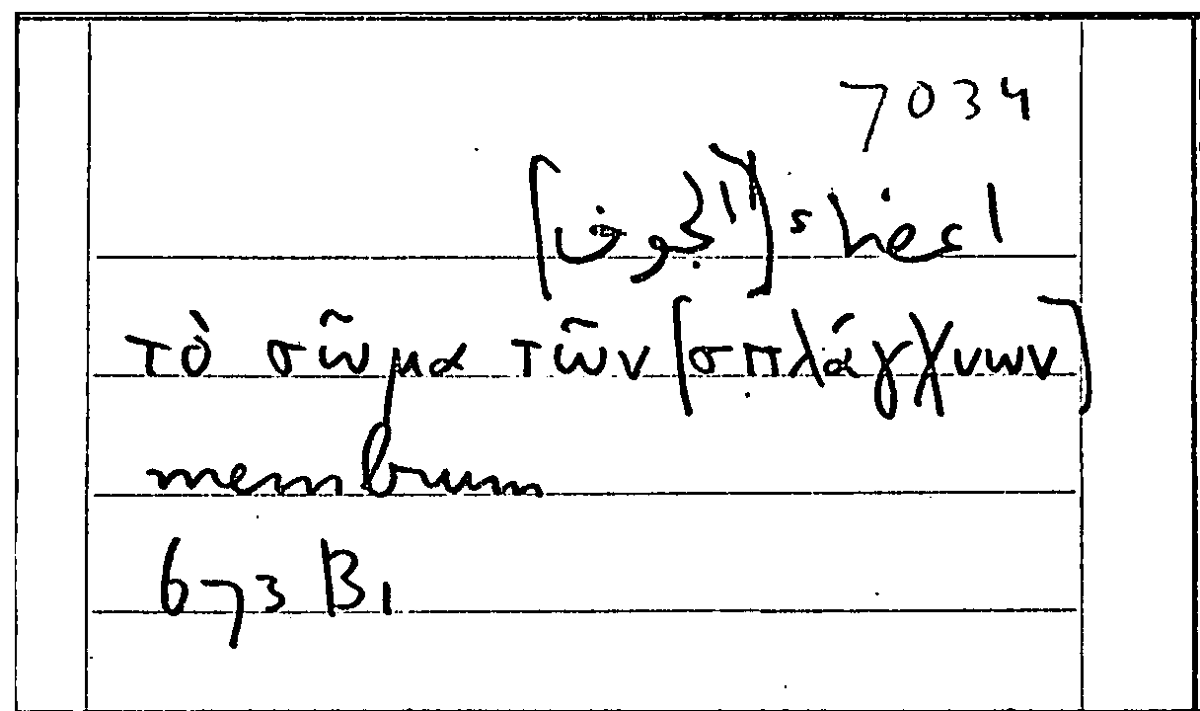 7034
اعضاء [الجوف]
τὸ σῶμα τῶν [σπλάγχνων]
membrum
673 B1